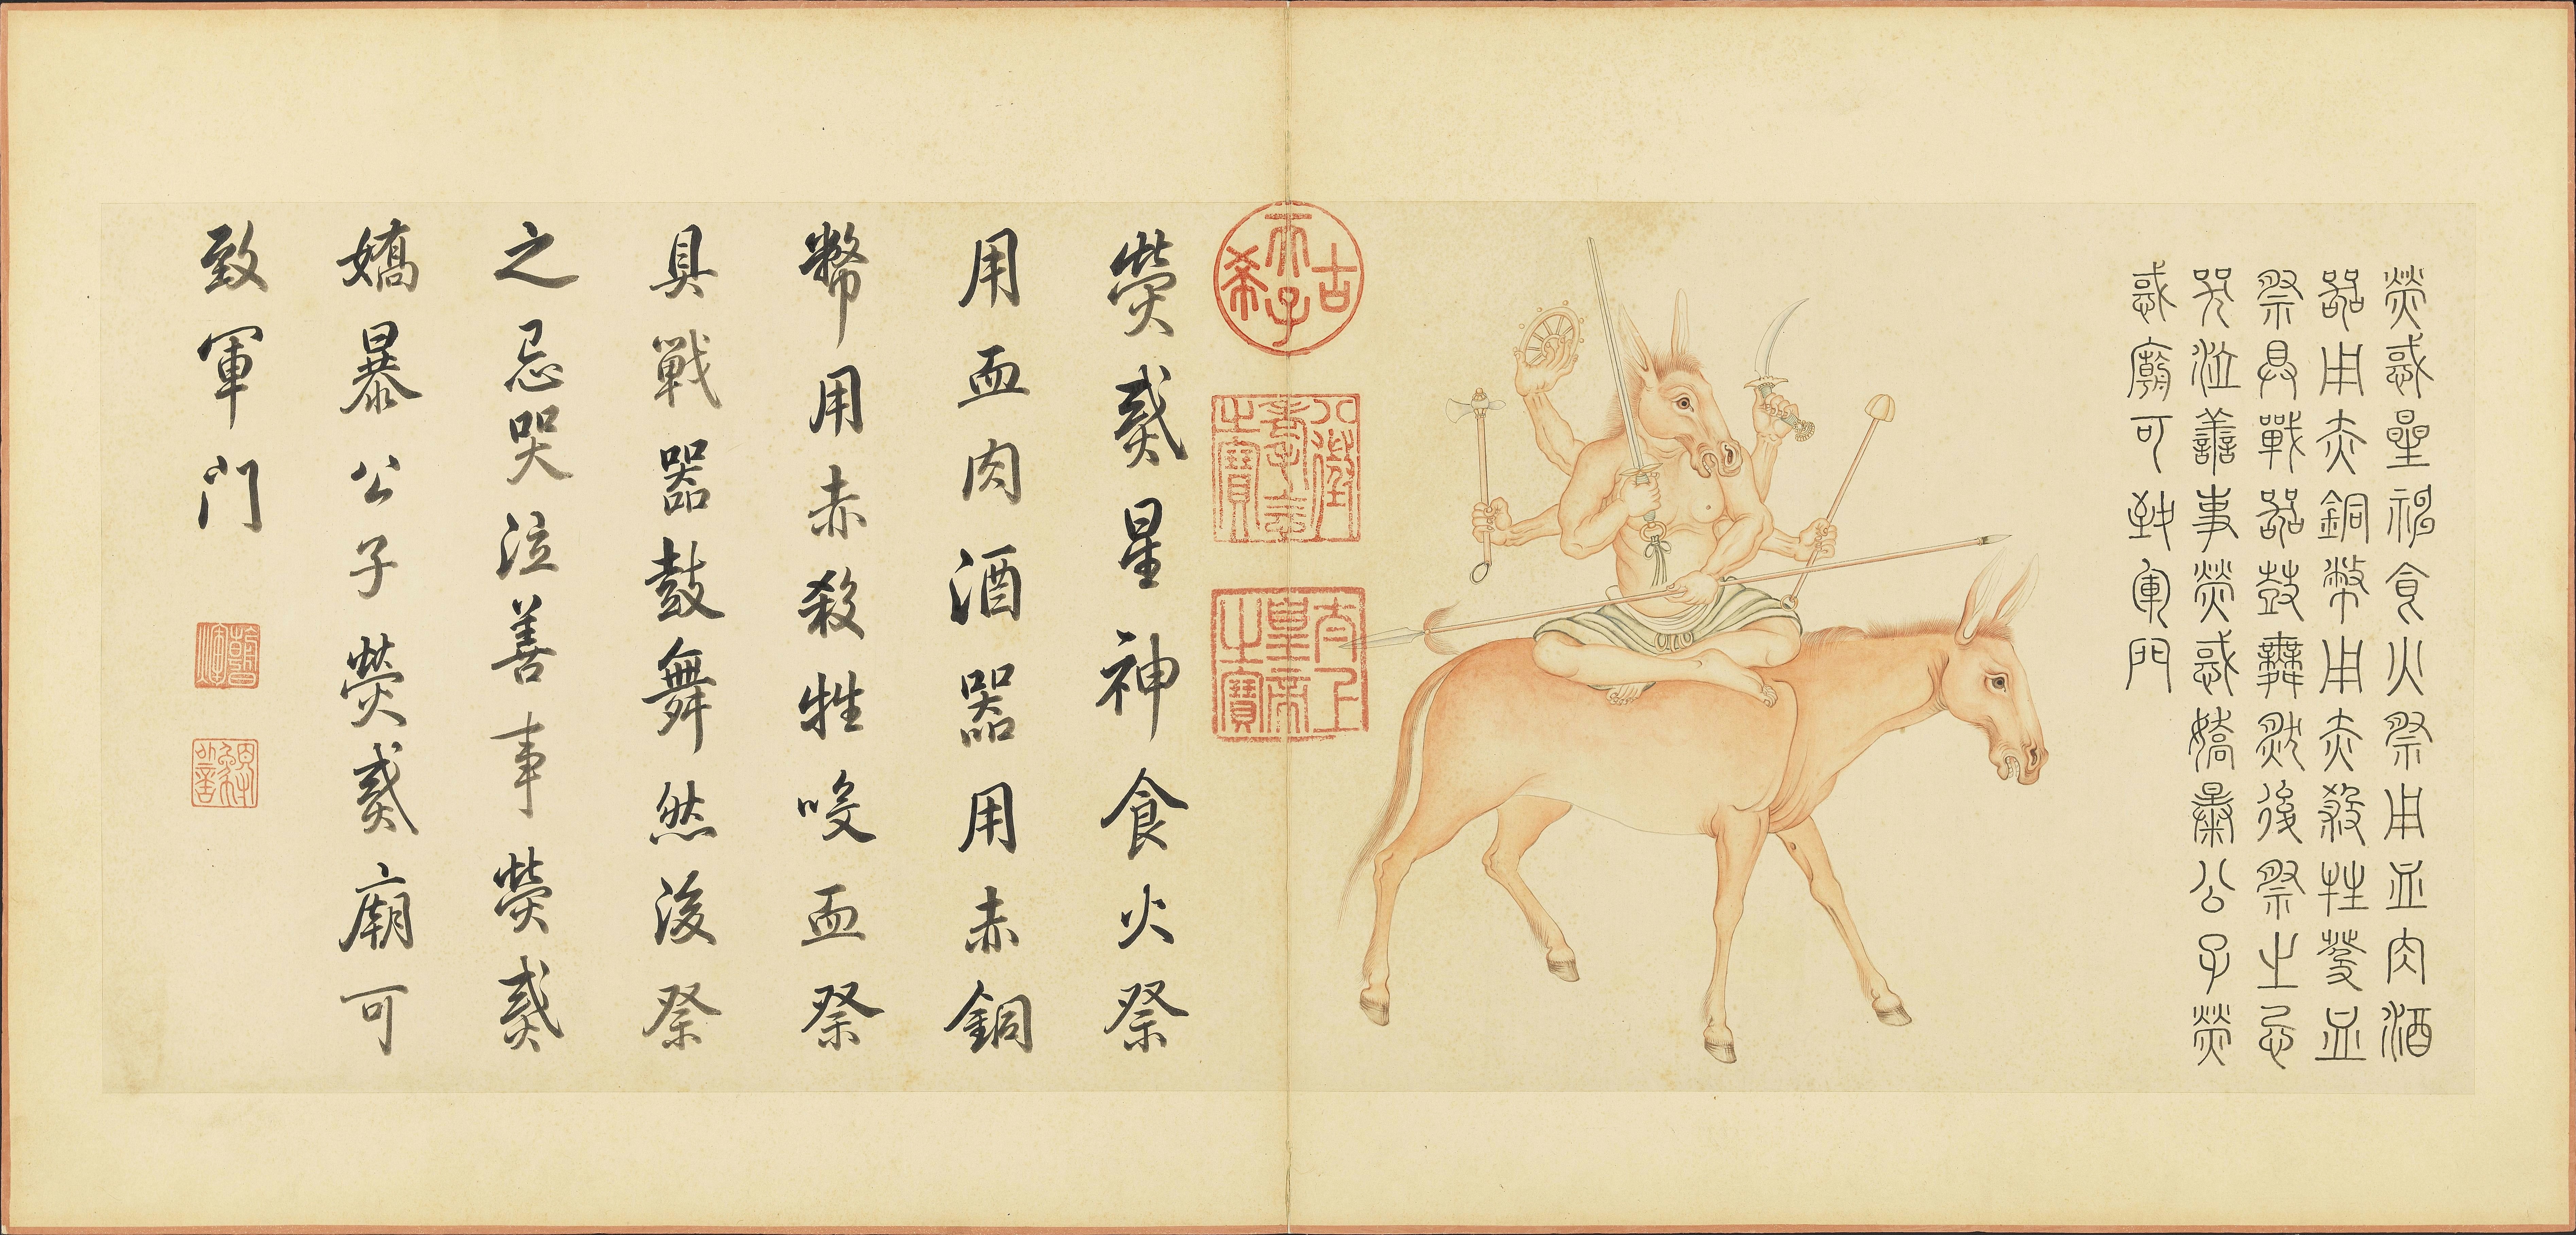 熒惑星神食火祭用血肉酒
器用赤銅幣用赤殺牲血
祭具戰器鼓舞然後祭之忌
哭泣善事熒惑嬌暴公子熒
惑廟可致軍門
古希天子
八徵耄念之寶
太上皇帝之寶
熒惑星神食火祭
用血肉酒器用赤銅
幣用赤殺牲咬血祭
具戰器鼓舞然後祭
之忌哭泣善事熒惑
嬌暴公子熒惑廟可
致軍門